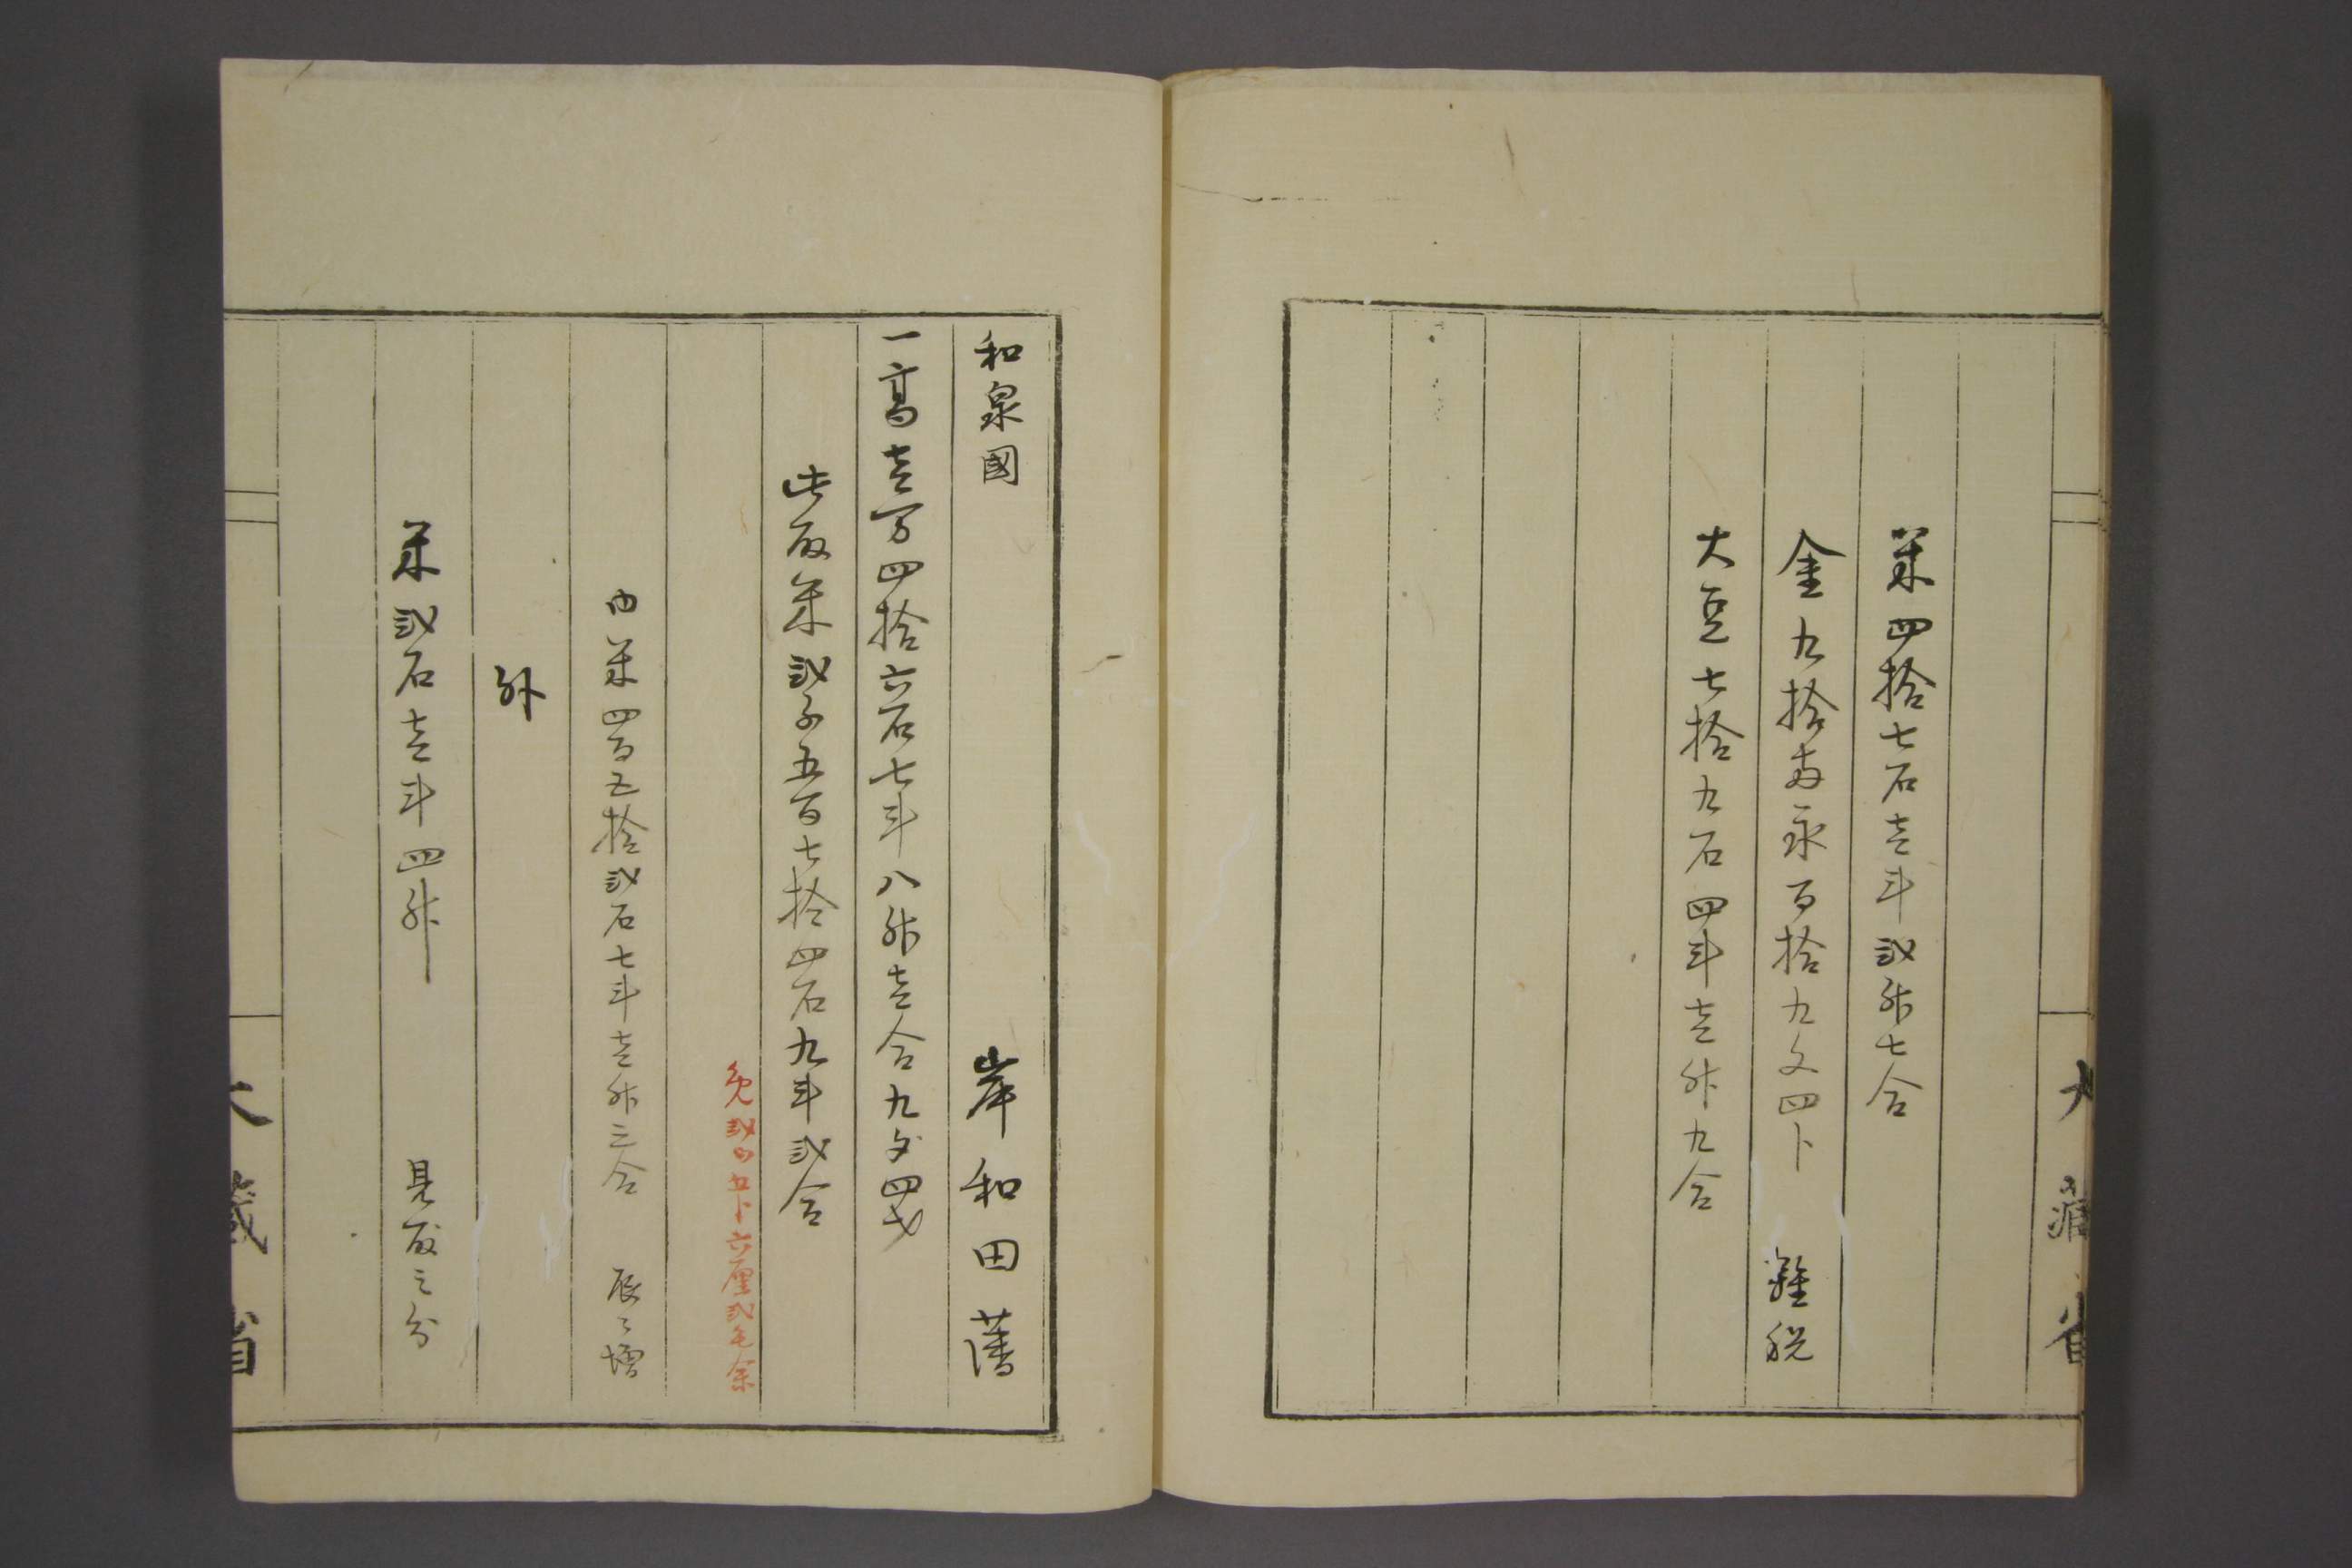 米四拾七石壱斗弐升七合
金九拾両永百拾九文四分
雑税
大豆七拾九石四斗壱升九合
大藏省
和泉國
岸和田藩
一高壱万四拾六石七斗八升壱合九勺四才
此取米弐千五百七拾四石九斗弐合
免弐ツ五分六厘弐毛余
内米四百五拾弐石七斗壱升三合
辰ゟ増
外
米弐石壱斗四升
見取之分
大藏省